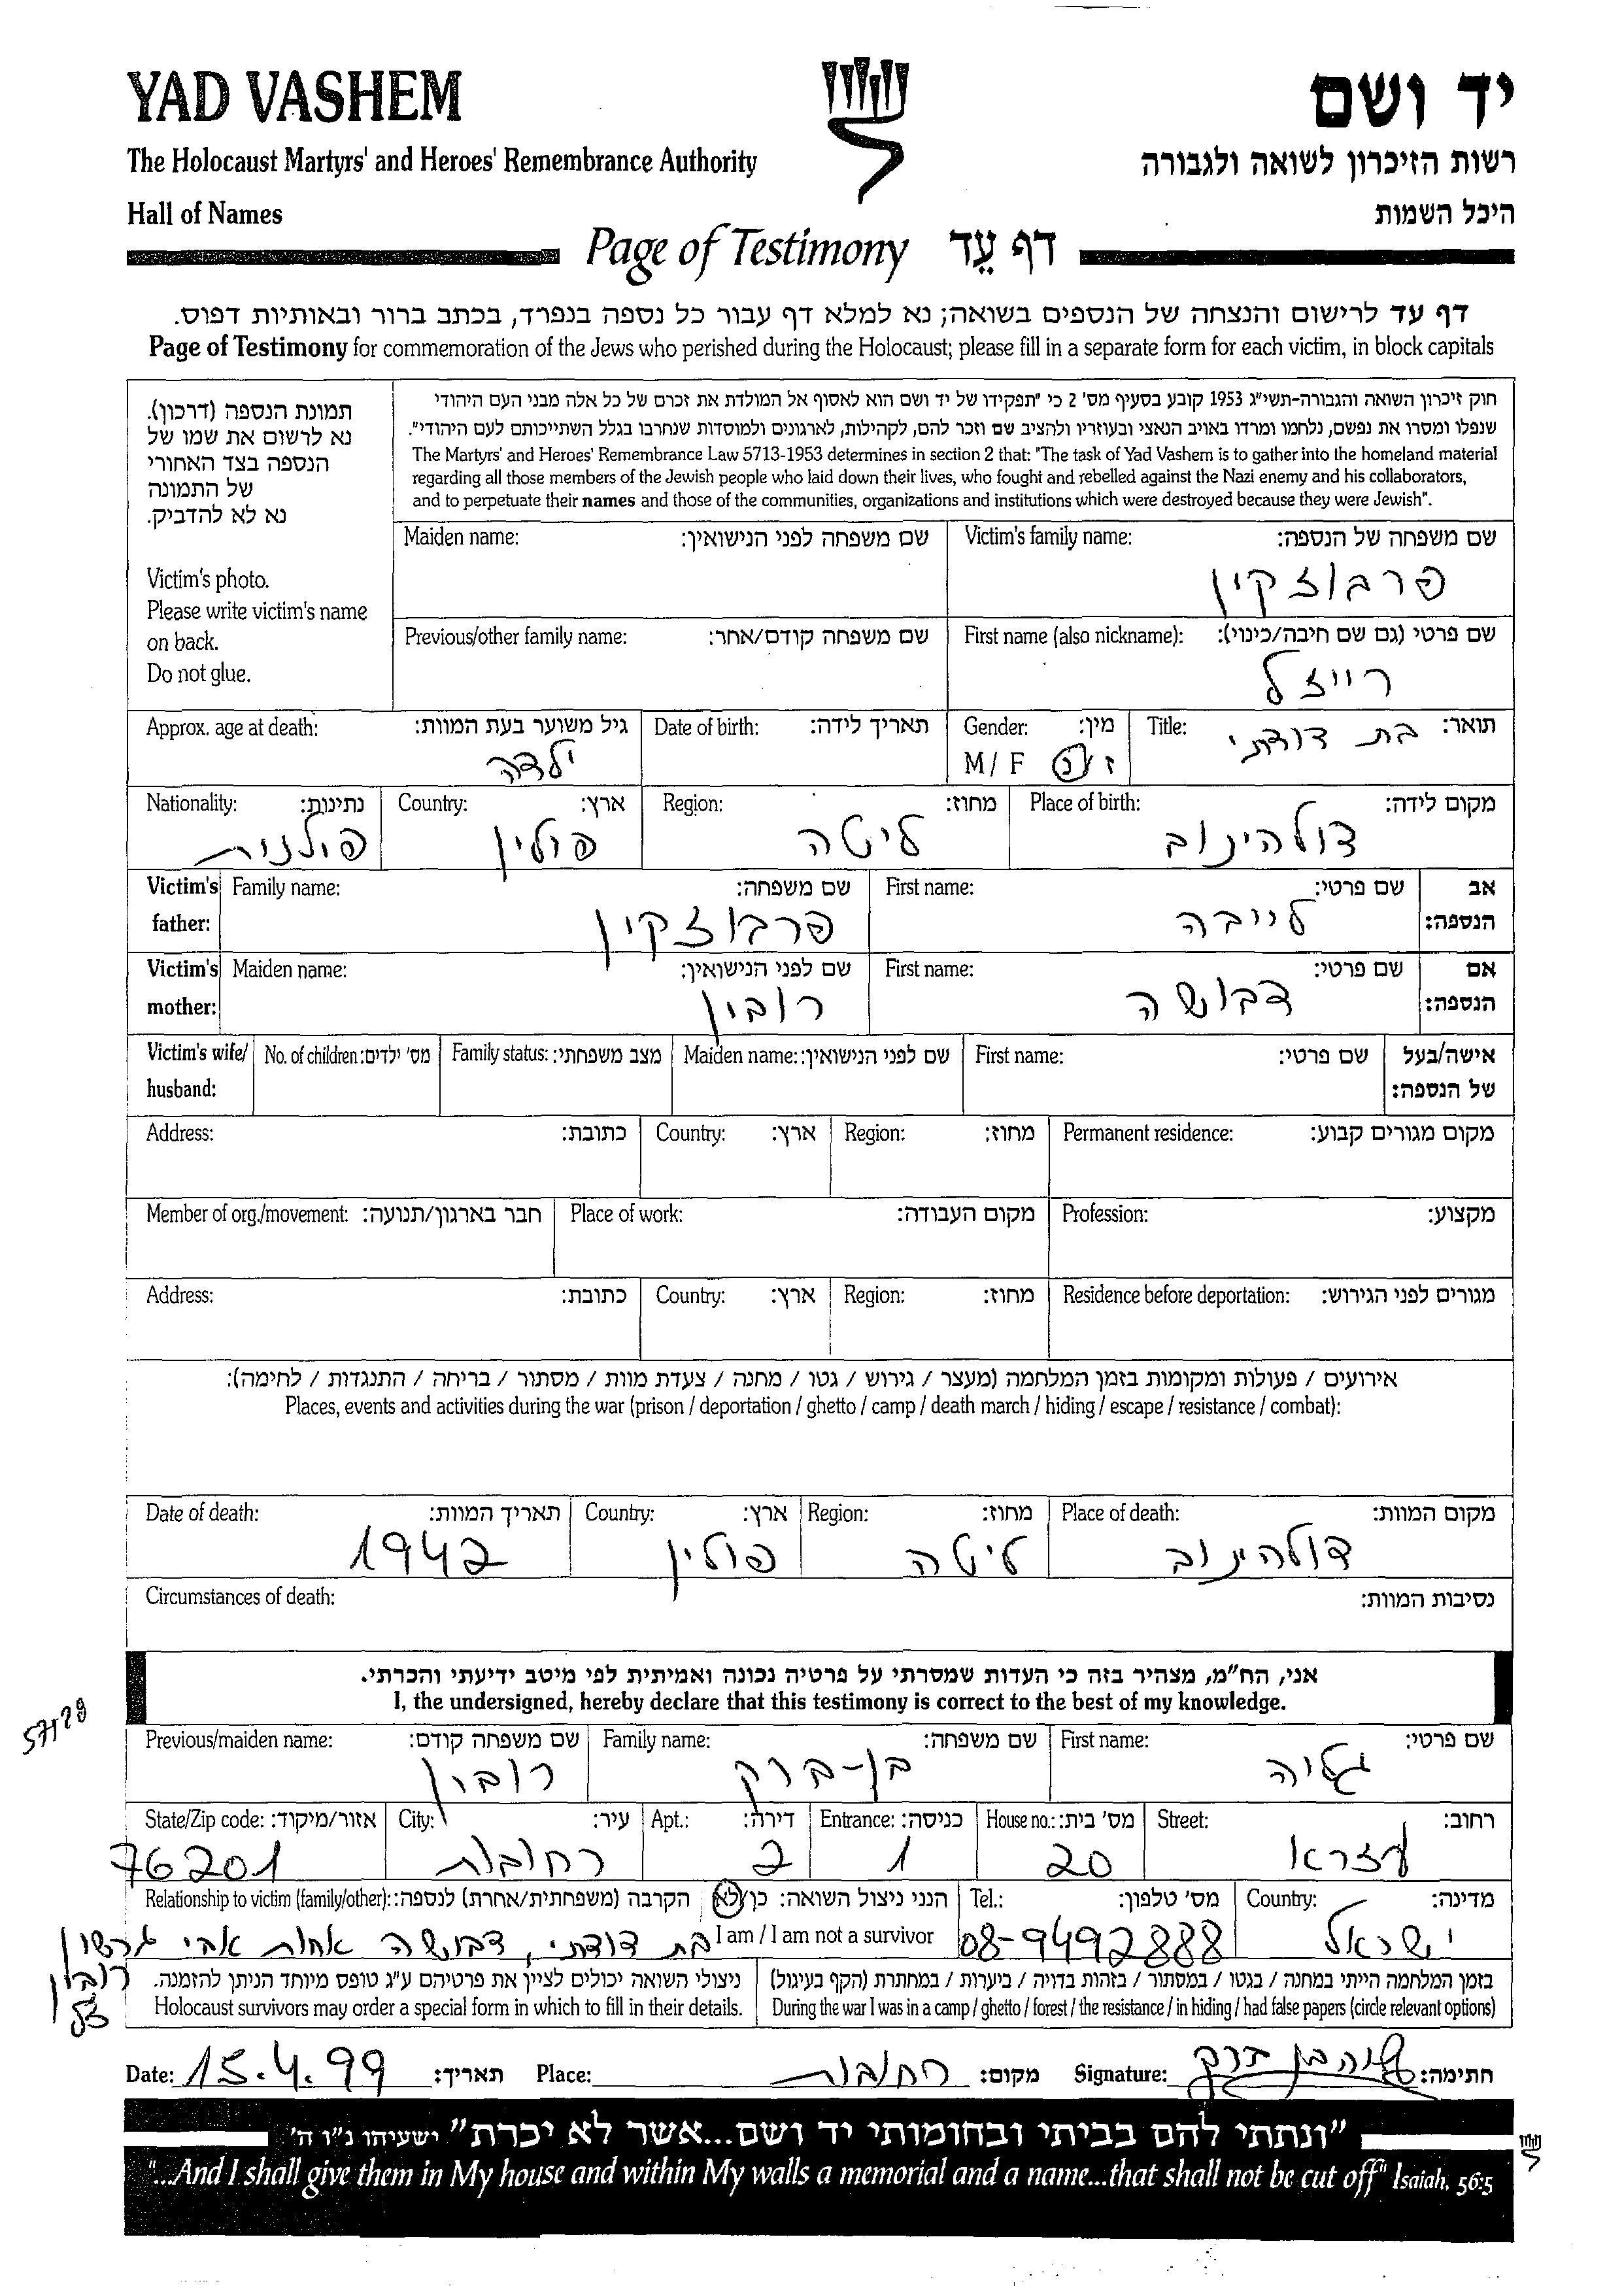 YAD VASHEM
יד ושם
The Holocaust Martyrs' and Heroes' Remembrance Authority
רשות הזיכרון לשואה ולגבורה
Hall of Names
היכל השמות
Page of Testimony דף עֵד
דף עד לרישום והנצחה של הנספים בשואה; נא למלא דף עבור כל נספה בנפרד, בכתב ברור ובאותיות דפוס.
Page of Testimony for commemoration of the Jews who perished during the Holocaust; please fill in a separate form for each victim, in block capitals
תמונת הנספה (דרכון).
נא לרשום את שמו של
הנספה בצד האחורי
של התמונה
נא לא להדביק.
Victim's photo.
Please write victim's name
on back.
Do not glue.
חוק זיכרון השואה והגבורה-תשי"ג 1953 קובע בסעיף מס' 2 כי "תפקידו של יד ושם הוא לאסוף אל המולדת את זכרם של כל אלה מבני העם היהודי
שנפלו ומסרו את נפשם, נלחמו ומרדו באויב הנאצי ובעוזריו ולהציב שם וזכר להם, לקהילות, לארגונים ולמוסדות שנחרבו בגלל השתייכותם לעם היהודי".
The Martyrs' and Heroes' Remembrance Law 5713-1953 determines in section 2 that: "The task of Yad Vashem is to gather into the homeland material
regarding all those members of the Jewish people who laid down their lives, who fought and rebelled against the Nazi enemy and his collaborators,
and to perpetuate their names and those of the communities, organizations and institutions which were destroyed because they were Jewish".
Victim's family name: שם משפחה של הנספה:
פרבוזקין
Maiden name: שם משפחה לפני הנישואין:
First name (also nickname): שם פרטי (גם שם חיבה/כינוי):
רייזל
Previous/other family name: שם משפחה קודם/אחר:
Title: תואר: בת דודתי
Gender: מין:
M / F ז / נ
Date of birth: תאריך לידה:
Approx. age at death: גיל משוער בעת המוות:
ילדה
Place of birth: מקום לידה:
דולהינוב
Region: מחוז:
ליטה
Country: ארץ:
פולין
Nationality: נתינות:
פולנית
Victim's father: אב הנספה:
First name: שם פרטי:
לייבה
Family name: שם משפחה:
פרבוזקין
Victim's mother: אם הנספה:
First name: שם פרטי:
דבושה
Maiden name: שם לפני הנישואין:
רובין
Victim's wife/ husband: אישה/בעל של הנספה:
First name: שם פרטי:
Maiden name: שם לפני הנישואין:
Family status: מצב משפחתי:
No. of children: מס' ילדים:
Permanent residence: מקום מגורים קבוע:
Region: מחוז:
Country: ארץ:
Address: כתובת:
Profession: מקצוע:
Place of work: מקום העבודה:
Member of org./movement: חבר בארגון/תנועה:
Residence before deportation: מגורים לפני הגירוש:
Region: מחוז:
Country: ארץ:
Address: כתובת:
אירועים / פעולות ומקומות בזמן המלחמה (מעצר / גירוש / גטו / מחנה / צעדת מוות / מסתור / בריחה / התנגדות / לחימה):
Places, events and activities during the war (prison / deportation / ghetto / camp / death march / hiding / escape / resistance / combat):
Place of death: מקום המוות:
דולהינוב
Region: מחוז:
ליטה
Country: ארץ:
פולין
Date of death: תאריך המוות:
1942
Circumstances of death: נסיבות המוות:
אני, הח"מ, מצהיר בזה כי העדות שמסרתי על פרטיה נכונה ואמיתית לפי מיטב ידיעתי והכרתי.
I, the undersigned, hereby declare that this testimony is correct to the best of my knowledge.
First name: שם פרטי:
גליה
Family name: שם משפחה:
בן-ברק
Previous/maiden name: שם משפחה קודם:
רובין
Street: רחוב:
עזרא
House no.: מס' בית:
20
Entrance: כניסה:
1
Apt.: דירה:
2
City: עיר:
רחובות
State/Zip code: אזור/מיקוד:
76201
Country: מדינה:
ישראל
Tel.: מס' טלפון:
08-9492888
הנני ניצול השואה: כן/לא
I am / I am not a survivor
Relationship to victim (family/other): הקרבה (משפחתית/אחרת) לנספה:
בת דודתי, דבושה אחות אבי גרשון
רובין
ז"ל
בזמן המלחמה הייתי במחנה / בגטו / במסתור / בזהות בדויה / ביערות / במחתרת (הקף בעיגול)
During the war I was in a camp / ghetto / forest / the resistance / in hiding / had false papers (circle relevant options)
ניצולי השואה יכולים לציין את פרטיהם ע"ג טופס מיוחד הניתן להזמנה.
Holocaust survivors may order a special form in which to fill in their details.
Date: 15.4.99 תאריך: Place: רחובות מקום: Signature: חתימה:
"ונתתי להם בביתי ובחומותי יד ושם...אשר לא יכרת" ישעיהו נ"ו ה'
"...And I shall give them in My house and within My walls a memorial and a name...that shall not be cut off" Isaiah, 56:5